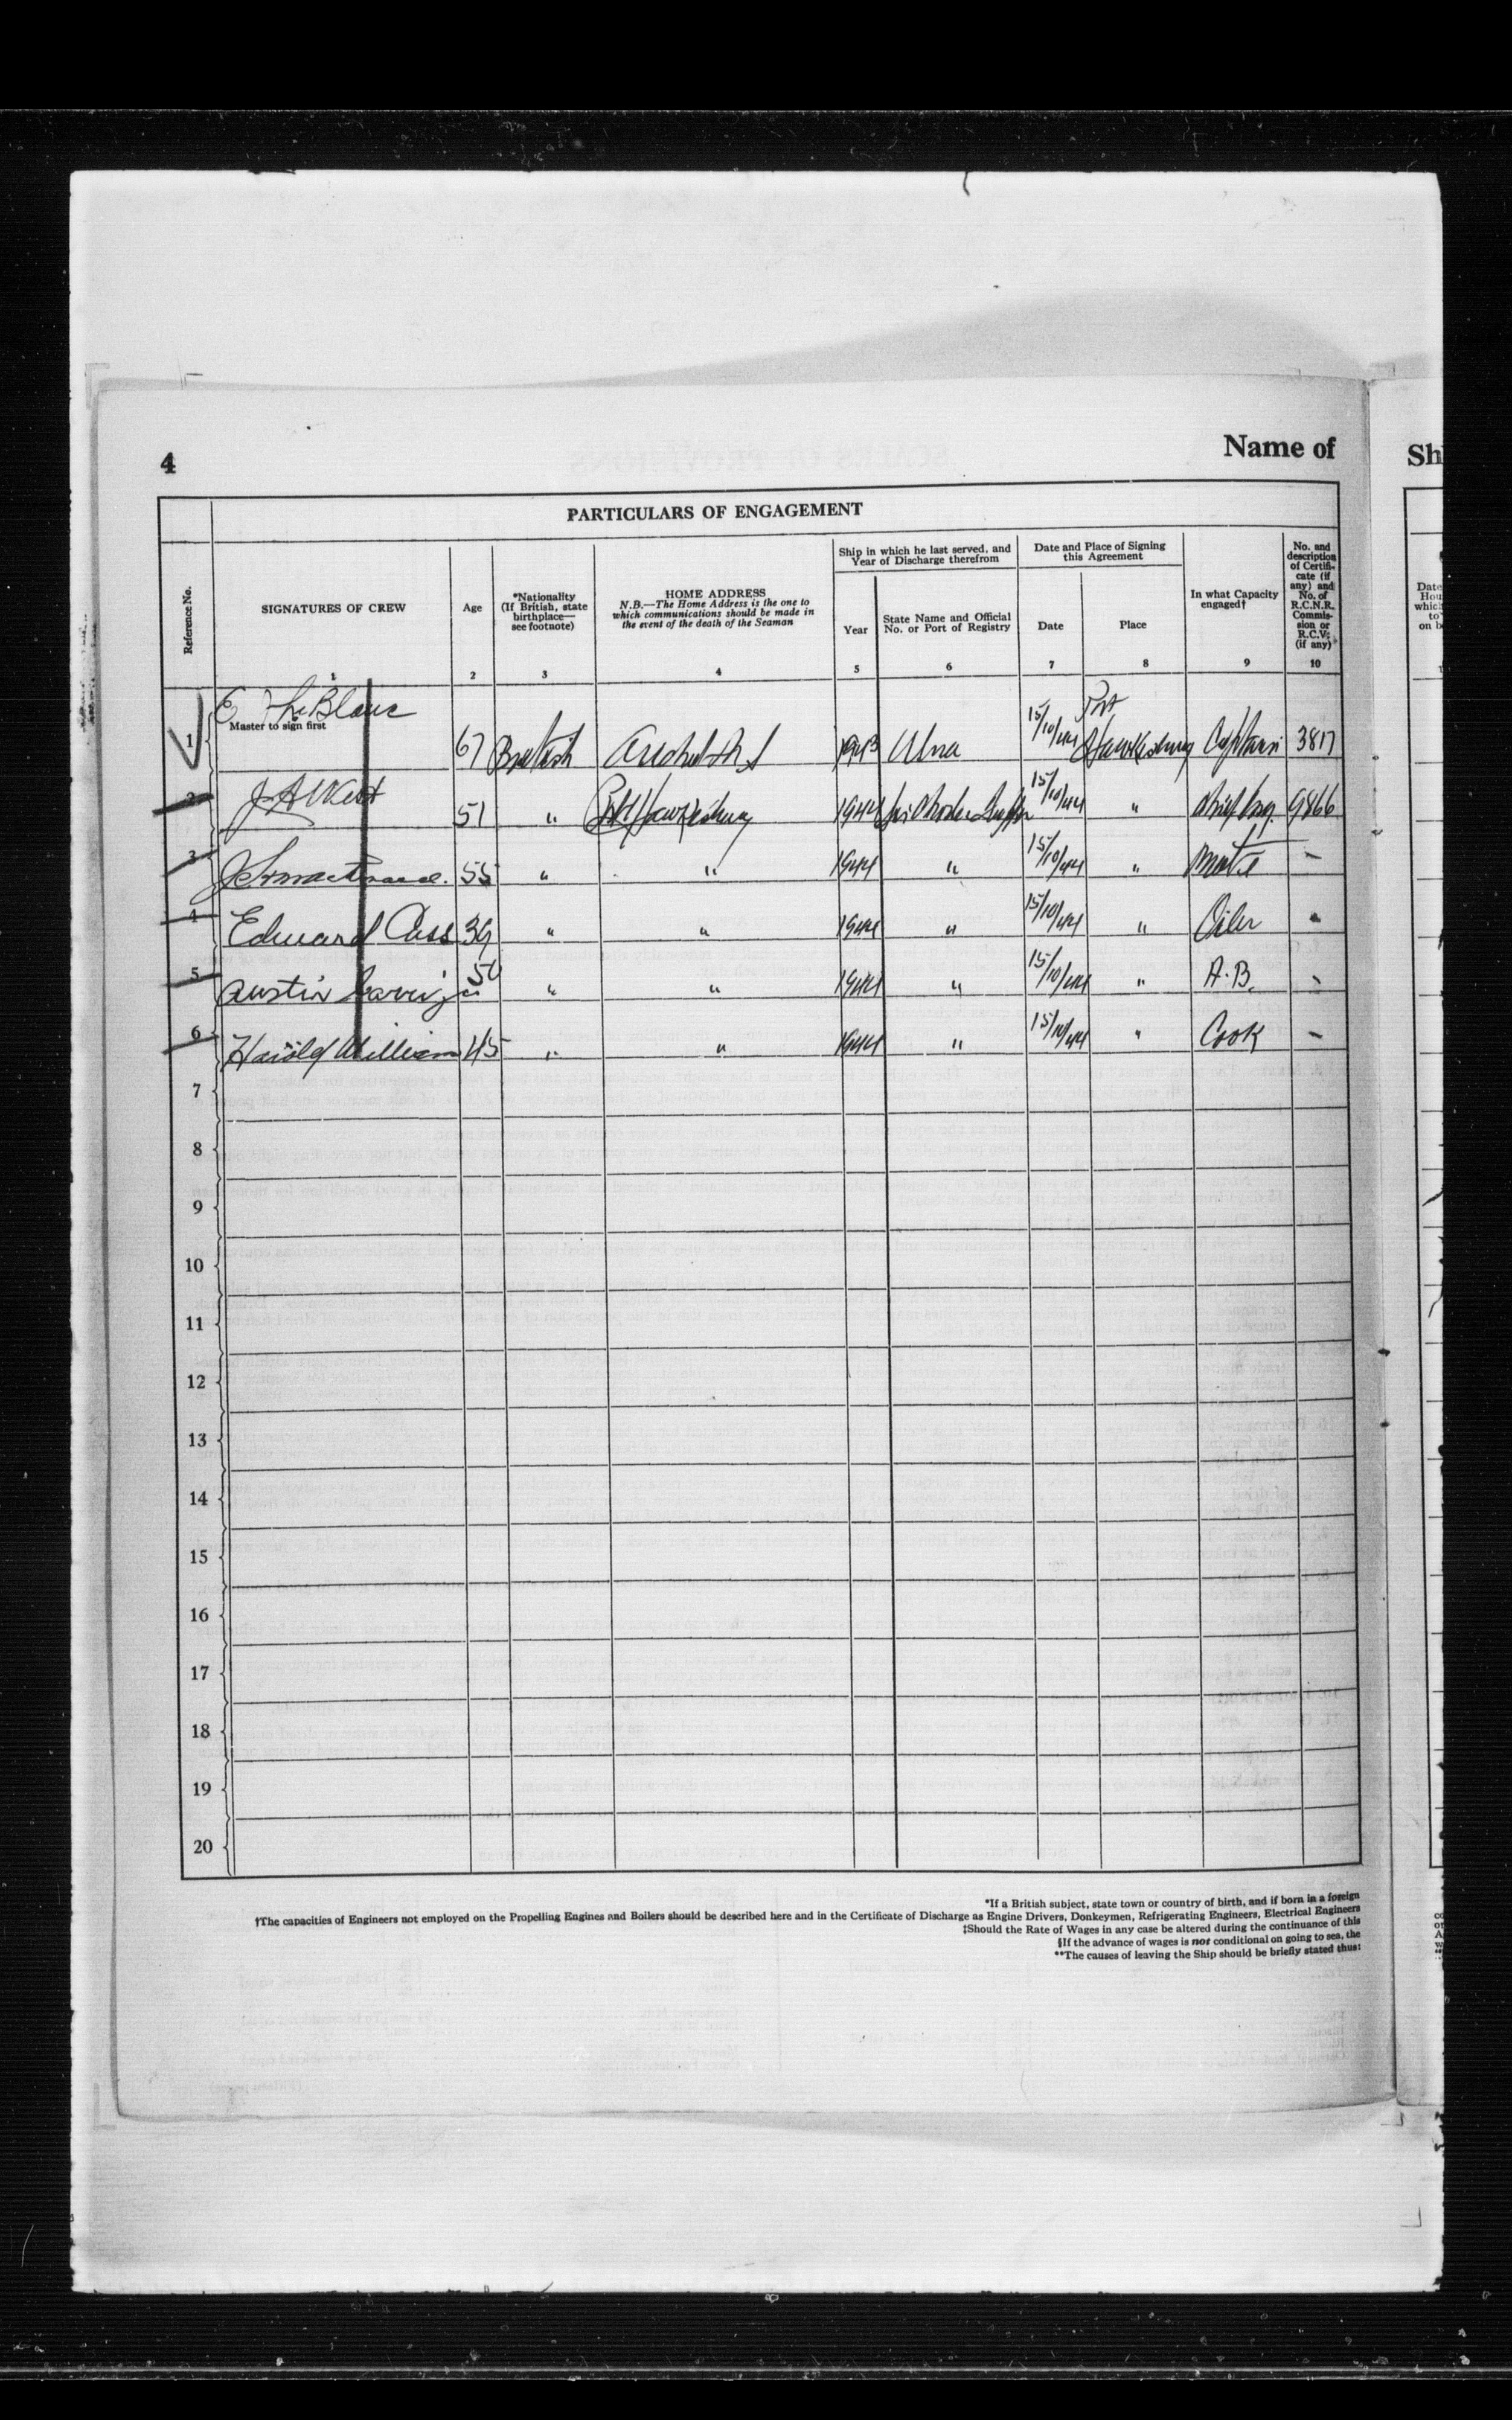 4
Name of
Sh
PARTICULARS OF ENGAGEMENT
Reference No.
SIGNATURES OF CREW
1
Age
2
*Nationality
(If British, state
birthplace—
see footnote)
3
HOME ADDRESS
N.B.—The Home Address is the one to
which communications should be made in
the event of the death of the Seaman
4
Ship in which he last served, and
Year of Discharge therefrom
Year
5
State Name and Official
No. or Port of Registry
6
Date and Place of Signing
this Agreement
Date
7
Place
8
In what Capacity
engaged†
9
No. and
description
of Certifi-
cate (if
any) and
No. of
R.C.N.R.
Commis-
sion or
R.C.V.
(if any)
10
1 E LeBlanc
Master to sign first
67 British 1943 15/10/44 Port Hawkesbury Captain 3817
2 51 " Port Hawkesbury 1944 15/10/44 " Chief Eng. 9866
3 55 " " 1944 " 15/10/44 " Mate —
4 Edward Cass 39 " " 1944 " 15/10/44 " Oiler "
5 Austin 50 " " 1944 " 15/10/44 " A.B.
6 Harold William 45 " " 1944 " 15/10/44 " Cook —
7
8
9
10
11
12
13
14
15
16
17
18
19
20
*If a British subject, state town or country of birth, and if born in a foreign
†The capacities of Engineers not employed on the Propelling Engines and Boilers should be described here and in the Certificate of Discharge as Engine Drivers, Donkeymen, Refrigerating Engineers, Electrical Engineers
‡Should the Rate of Wages in any case be altered during the continuance of this
§If the advance of wages is not conditional on going to sea, the
**The causes of leaving the Ship should be briefly stated thus: